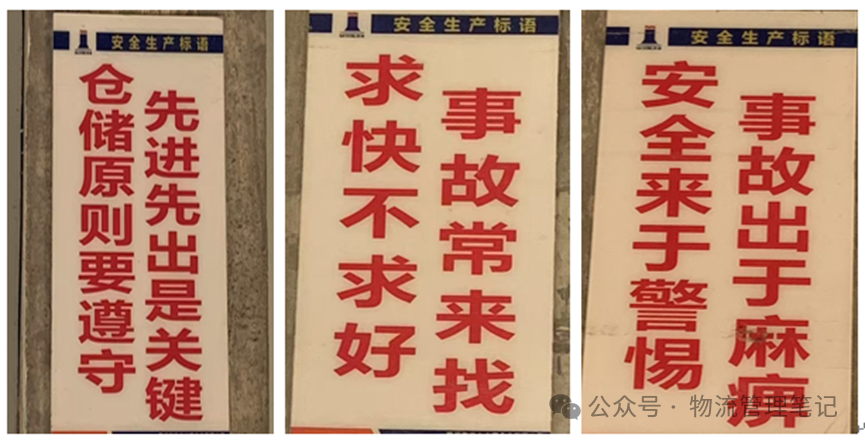 安全生产标语
仓储原则要遵守
先进先出是关键
安全生产标语
求快不求好
事故常来找
安全生产标语
安全来于警惕
事故出于麻痹
公众号·物流管理笔记